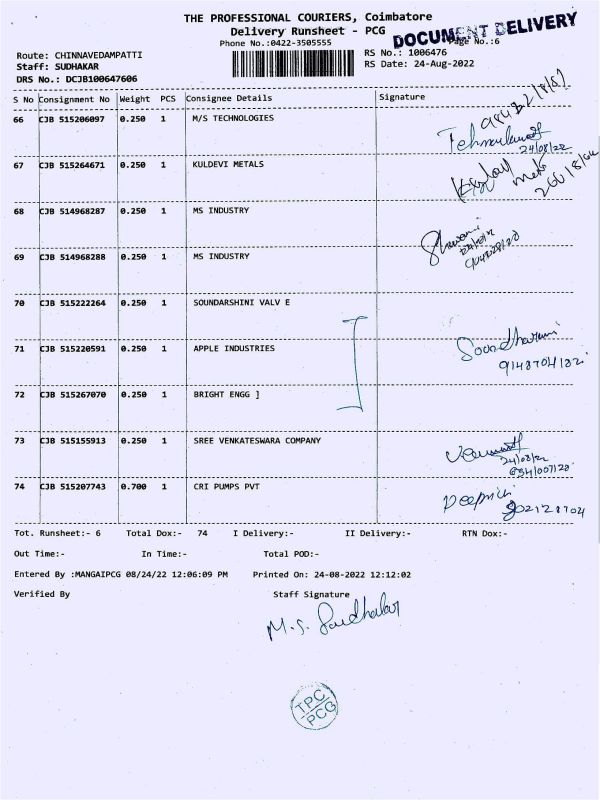 THE PROFESSIONAL COURIERS, Coimbatore
Delivery Runsheet - PCG
DOCUMENT DELIVERY
Phone No.:0422-3505555
Page No.:6
Route: CHINNAVEDAMPATTI
RS No.: 1006476
Staff: SUDHAKAR
RS Date: 24-Aug-2022
DRS No.: DCJB100647606
S No Consignment No Weight PCS Consignee Details Signature
66 CJB 515206097 0.250 1 M/S TECHNOLOGIES
24/08/22
67 CJB 515264671 0.250 1 KULDEVI METALS
68 CJB 514968287 0.250 1 MS INDUSTRY
69 CJB 514968288 0.250 1 MS INDUSTRY
70 CJB 515222264 0.250 1 SOUNDARSHINI VALV E
71 CJB 515220591 0.250 1 APPLE INDUSTRIES
9148704182
72 CJB 515267070 0.250 1 BRIGHT ENGG ]
73 CJB 515155913 0.250 1 SREE VENKATESWARA COMPANY
24/08/22
74 CJB 515207743 0.700 1 CRI PUMPS PVT
Tot. Runsheet:- 6 Total Dox:- 74 I Delivery:- II Delivery:- RTN Dox:-
Out Time:- In Time:- Total POD:-
Entered By :MANGAIPCG 08/24/22 12:06:09 PM Printed On: 24-08-2022 12:12:02
Verified By Staff Signature
M.S. Sudhakar
TPC
PCG